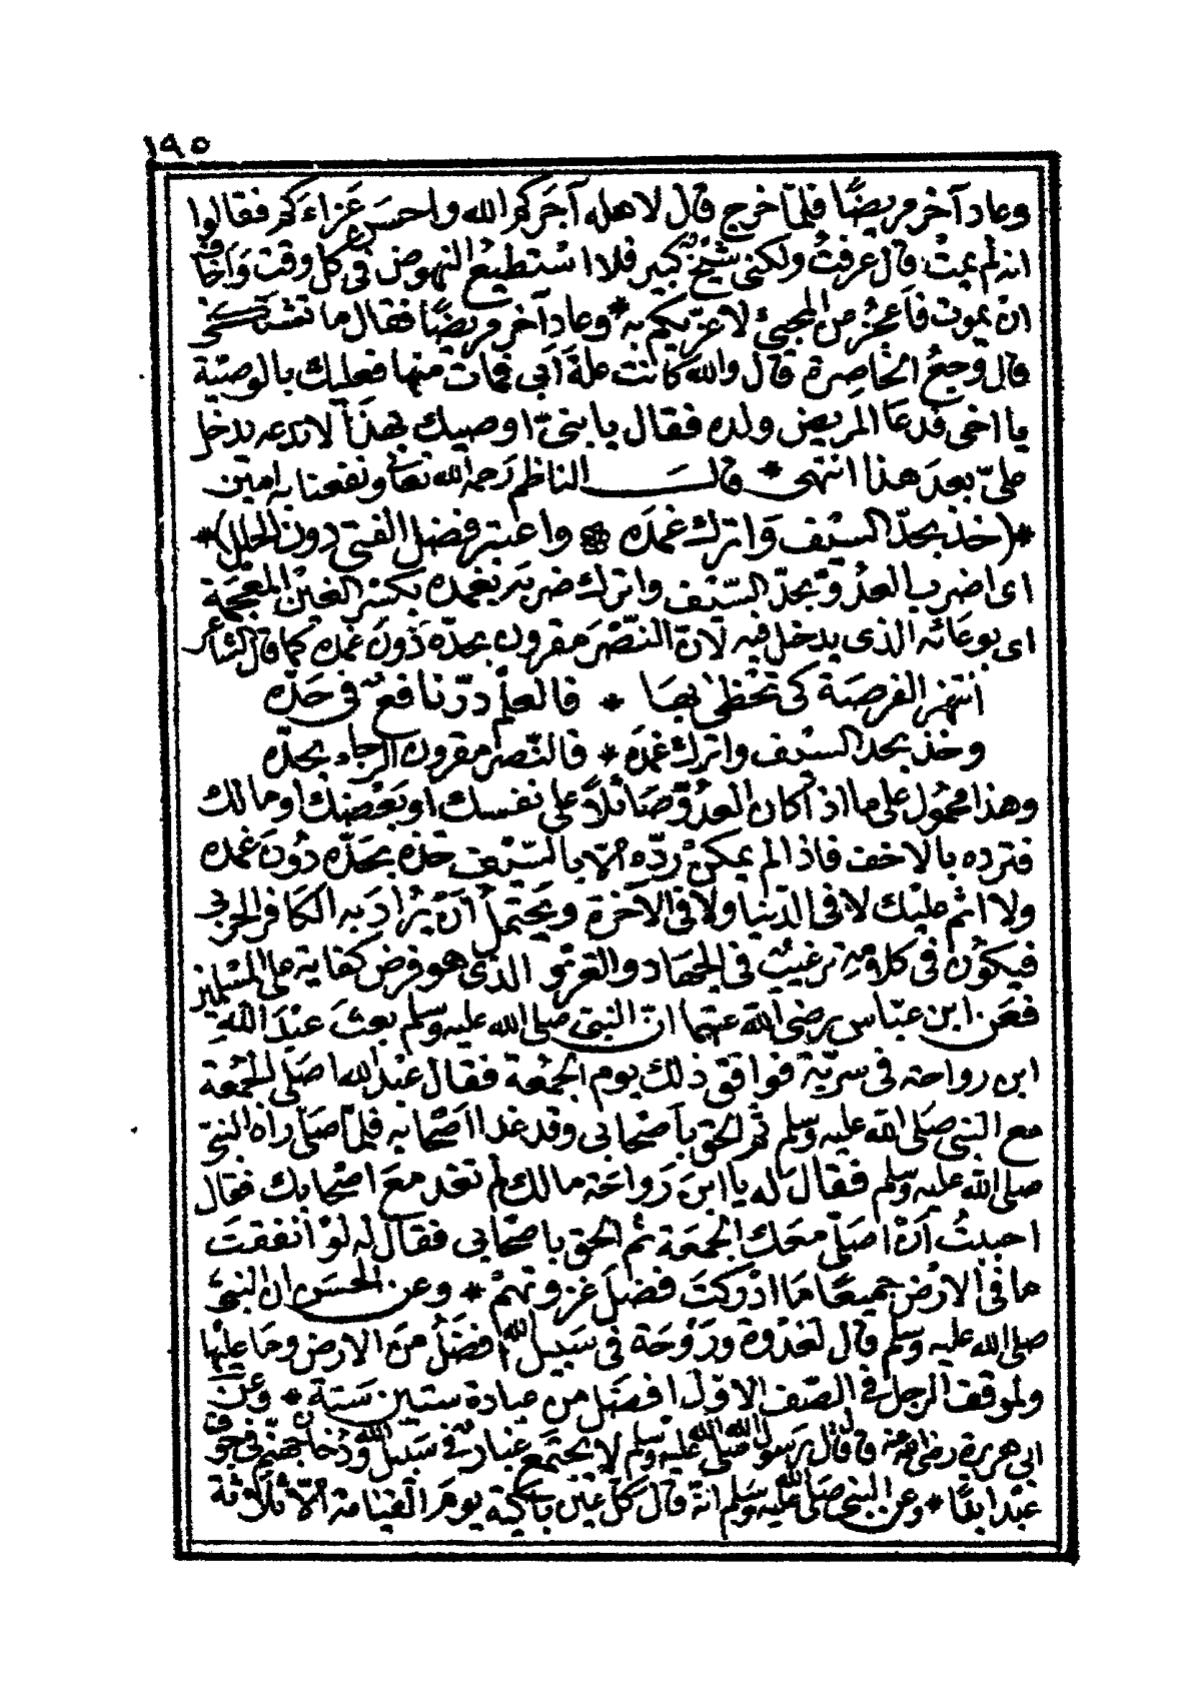 ١٩٥
وعاد آخر مريضًا فلمّا خرج قال لاهله آجَركم الله واحسن عَزاءَكم فقالوا
انه لم يمت قال عرفتُ ولكنى شَيْخٌ كبير فلا اسْتطيعُ النهوض فى كل وقت وَاخاف
ان يموت فأعجُز من المجئ لاعزّيكم به * وعاد آخر مريضًا فقال ما تشتكى
قال وجعُ الخاصِرة قال والله كانت علة أبى فمات منها فعليك بالوصيّة
يا اخى فدعَا المريض ولده فقال يا بنىّ اوصيك بهذا لا تدعه يدخل
علىّ بعد هذا انتهى * قالــ الناظم رَحمه الله تعالى ونفعنا به امين
*(خذ بحدّ السّيْف وَاترك غمدَه واعتبر فضل الفتى دون الحلل)*
اى اضرب العدوّ بحدّ السّيْف واترك ضربَه بغمده بكسْر الغين المعجمة
اى بوعَائه الذى يدخل فيه لانّ النصْرَ مقرون بحدّه دُونَ غمده كما قال الشاعر
انتهز الفرصَة كى تحْظى بهَا * فالعلم درّ نافعٌ فى حَدّه
وخذ بحد السيْف واترك غمدَه * فالنّصر مقرون الرجاء بحدّه
وهذا محمُول على ما اذا كان العدوّ صَائلاً على نفسك او بَعْضِك او مالك
فترده بالاخف فاذا لم يمكنْ ردّه الاّ بالسّيْف خذه بحَدّه دُونَ غمده
ولا اثم عليْك لا فى الدّنيا ولا فى الآخرة ويَحتملُ أنْ يُرَادَ به الكافر الحربى
فيكوُن فى كلامه ترغيبٌ فى الجهاد والغزو الذى هو فرض كفاية على المسْلمين
فعَن ابن عبّاس رضى الله عنهما انّ النبىّ صلى الله عليه وسلم بعثَ عبْدَ الله
ابن رواحة فى سريّة فوافق ذلك يوم الجمْعة فقال عبْدالله اصَلى الجُمعة
مع النبى صَلى الله عليه وسلم ثم الحق بأصْحابى وقد غدا اصْحابه فلمّا صَلى رآه النبىّ
صلى الله عليه وسلم فقال له يا ابنَ رَواحَة مالك لم تغد معَ اصْحابك فقال
احببْتُ أنْ اصَلّى معَك الجمعَة ثم الحق باصْحابى فقال له لوْ انفقتَ
ما فى الارْض جميعًا مَا ادْركتَ فضلَ غزوتهمْ * وعن الحسَن ان النبىَّ
صلى الله عليه وسلم قال لغدْوة ورَوْحَة فى سَبيل الله افضَلُ منَ الارض وما عليْها
ولموقف الرجل فى الصّف الاوّل افضَل من عبادة ستين سَنة * وعَنْ
ابى هريرة رضى الله عنه قال قال رَسول الله صَلى الله عليه وسلم لا يجتمع غبار فى سَبيل الله ودُخان جهنّم فى جوف
عبْد ابدًا * وعن النبى صَلى الله عليه وسَلم انهّ قال كل عيْن باكية يومَ القيامة الاّ ثلاثة